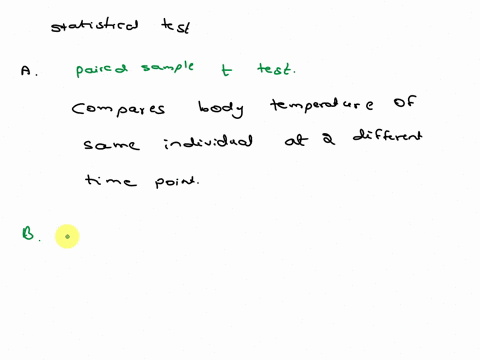 statistical test
A. paired sample t test.
Compares body temperature of
same individual at 2 different
time point.
B.